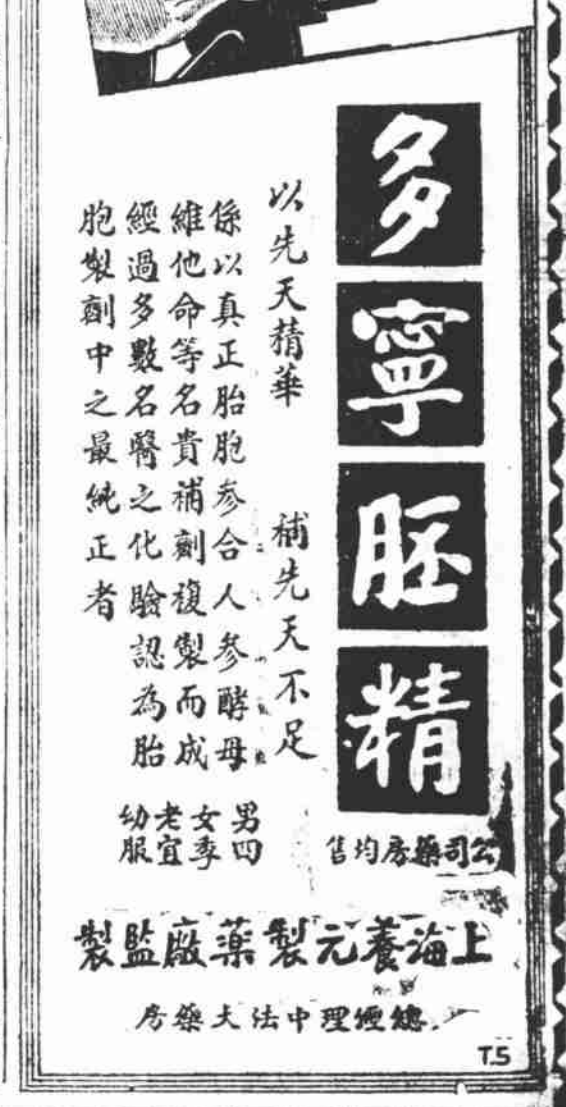 多寧胚精
公司藥房均售
以先天精華　補先天不足
係以真正胎胞参合人参酵母
維他命等名貴補劑複製而成
經過多數名醫之化驗認為胎
胞製劑中之最純正者
男女老幼
四季宜服
上海養元製藥廠監製
總經理中法大藥房
T.5